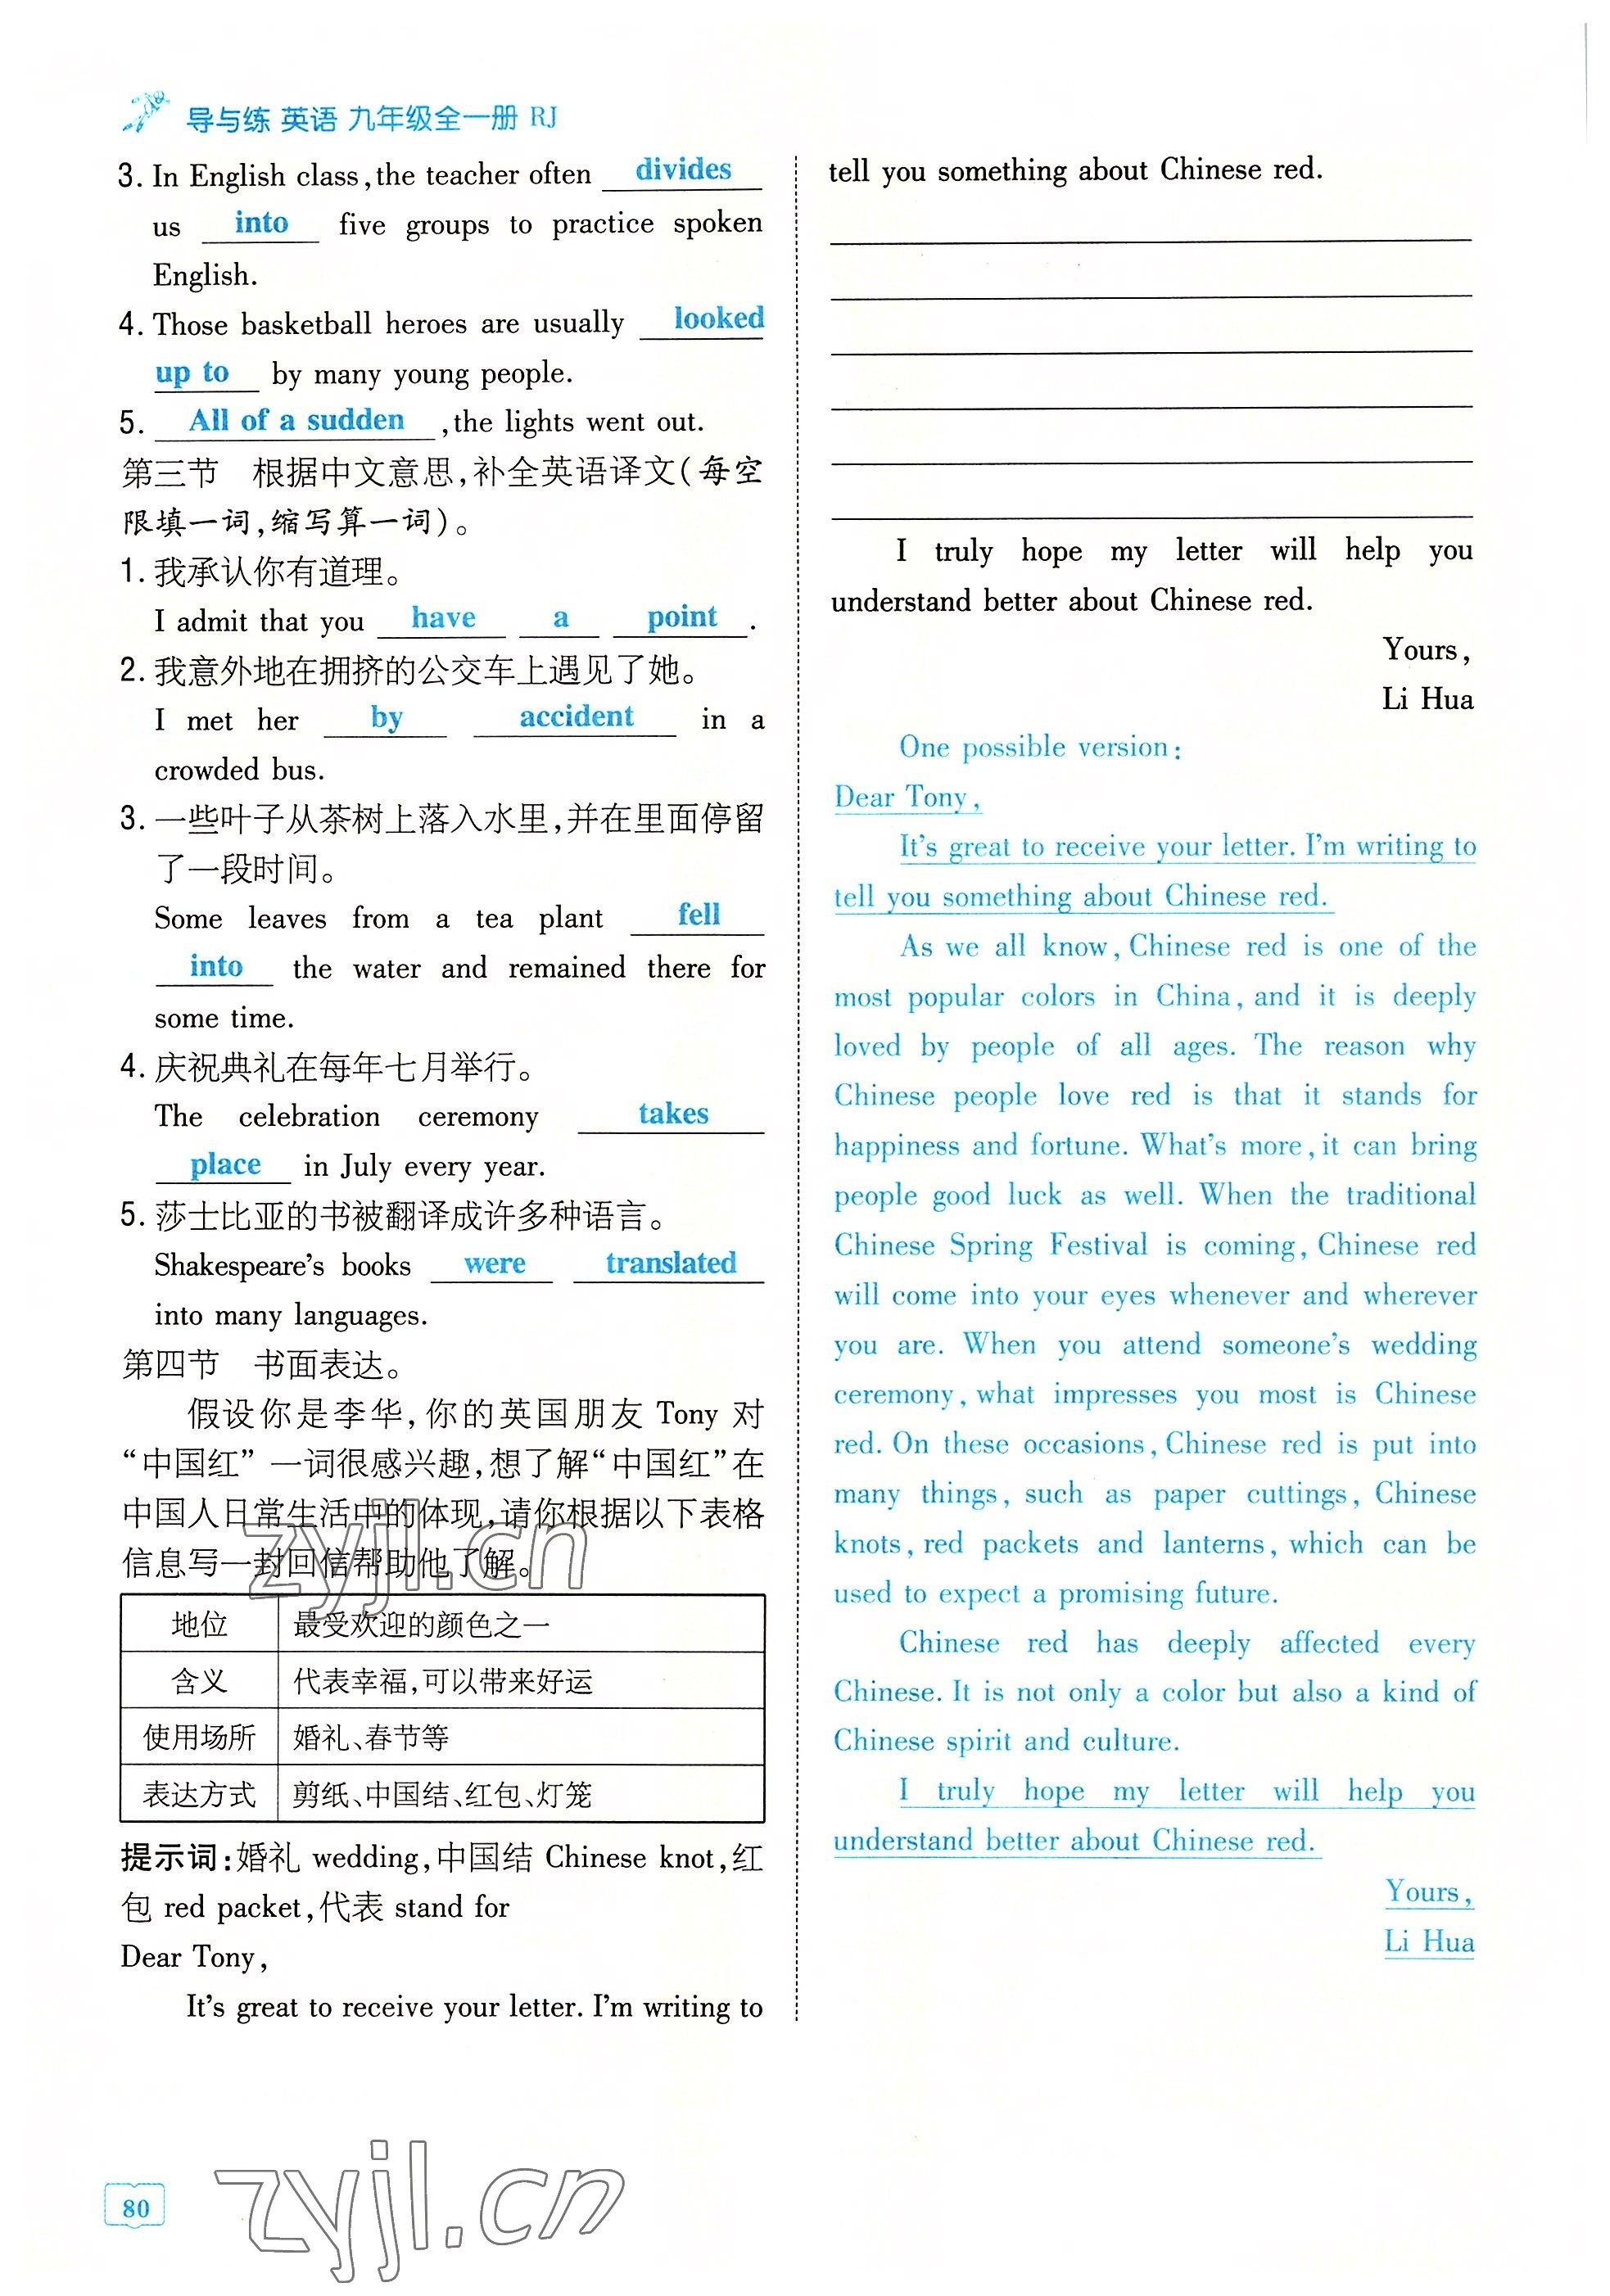 导与练 英语 九年级全一册 RJ
3. In English class, the teacher often divides
us into five groups to practice spoken
English.
4. Those basketball heroes are usually looked
up to by many young people.
5. All of a sudden, the lights went out.
第三节 根据中文意思,补全英语译文(每空
限填一词,缩写算一词)。
1. 我承认你有道理。
I admit that you have a point.
2. 我意外地在拥挤的公交车上遇见了她。
I met her by accident in a
crowded bus.
3. 一些叶子从茶树上落入水里,并在里面停留
了一段时间。
Some leaves from a tea plant fell
into the water and remained there for
some time.
4. 庆祝典礼在每年七月举行。
The celebration ceremony takes
place in July every year.
5. 莎士比亚的书被翻译成许多种语言。
Shakespeare's books were translated
into many languages.
第四节 书面表达。
假设你是李华,你的英国朋友 Tony 对
“中国红” 一词很感兴趣,想了解“中国红”在
中国人日常生活中的体现,请你根据以下表格
信息写一封回信帮助他了解。
地位 最受欢迎的颜色之一
含义 代表幸福,可以带来好运
使用场所 婚礼、春节等
表达方式 剪纸、中国结、红包、灯笼
提示词:婚礼 wedding,中国结 Chinese knot,红
包 red packet,代表 stand for
Dear Tony,
It's great to receive your letter. I'm writing to
tell you something about Chinese red.
I truly hope my letter will help you
understand better about Chinese red.
Yours,
Li Hua
One possible version:
Dear Tony,
It's great to receive your letter. I'm writing to
tell you something about Chinese red.
As we all know, Chinese red is one of the
most popular colors in China, and it is deeply
loved by people of all ages. The reason why
Chinese people love red is that it stands for
happiness and fortune. What's more, it can bring
people good luck as well. When the traditional
Chinese Spring Festival is coming, Chinese red
will come into your eyes whenever and wherever
you are. When you attend someone's wedding
ceremony, what impresses you most is Chinese
red. On these occasions, Chinese red is put into
many things, such as paper cuttings, Chinese
knots, red packets and lanterns, which can be
used to expect a promising future.
Chinese red has deeply affected every
Chinese. It is not only a color but also a kind of
Chinese spirit and culture.
I truly hope my letter will help you
understand better about Chinese red.
Yours,
Li Hua
zyjl.cn
zyjl.cn
80